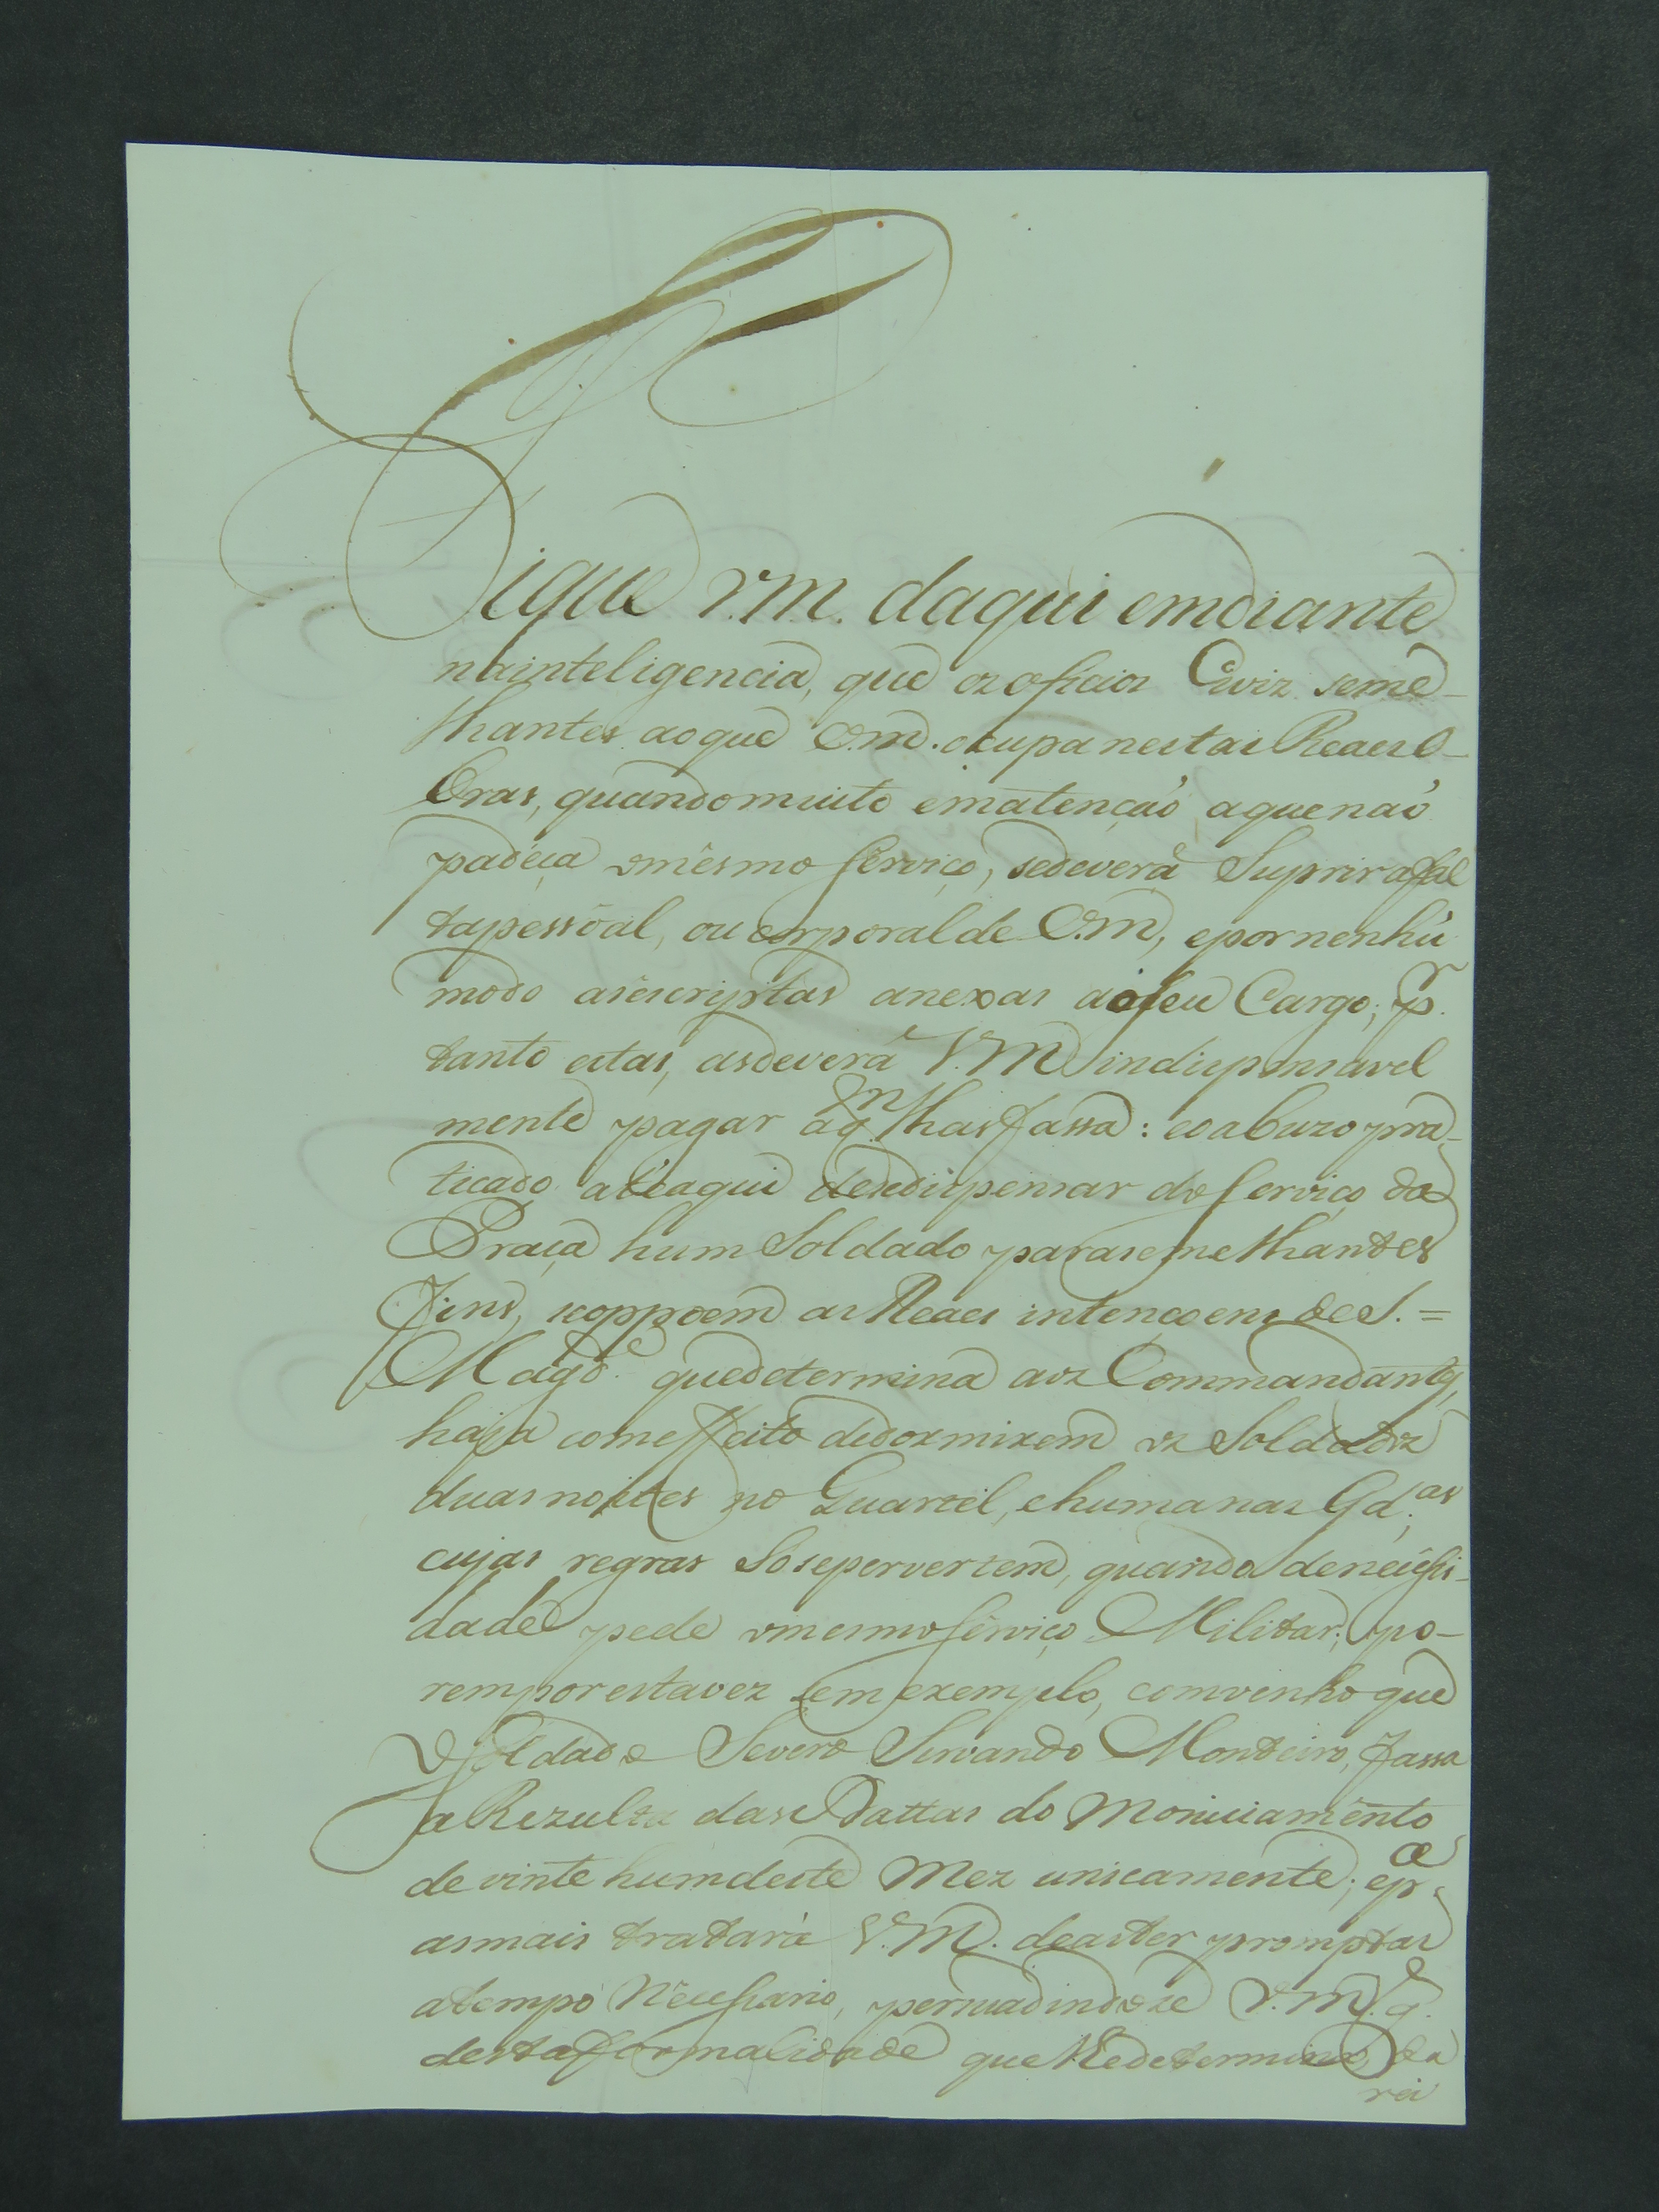 Fique V.M. daqui emdiante
nainteligencia, que os oficios Civiz seme-
lhantes aoque V.M. ocupa nestas Reaes O-
bras, quando muito ematenção aque não
padeça omesmo serviço, sedeverá Suprir afal
tapessoal, ou corporal de V.M, epornenhũ
modo asescriptas anexas aoseu Cargo; p.r
tanto estas, asdeverá V.M indispensavel
mente pagar aq.m lhas fassa: eoabuzo pra-
ticado atéaqui desedispensar do serviço da
Praça hum Soldado parasemelhantes
Fins, seoppoem as Reaes intençoens de S. =
Magd.e quedetermina aoz Commandantes,
haja comeffeito dedormirem oz Soldadoz
duas noites no Quartel, ehuma nas Gd.as,
cujas regras Sosepervertem, quando denecessi-
dade pede omesmo serviço Militar; po-
rempor estavez sem exemplo, comvenho que
o Soldado Severo Servando Monteiro, fassa
a Rezulta das Dattas do Moniciamento
de vinte humdeste Mez unicamente; ep.a
asmais tratará V.M. deaster promptas
atempo Necessario, persuadindose V.M. q.e
desta formalidade que lhedetermino, da
rei